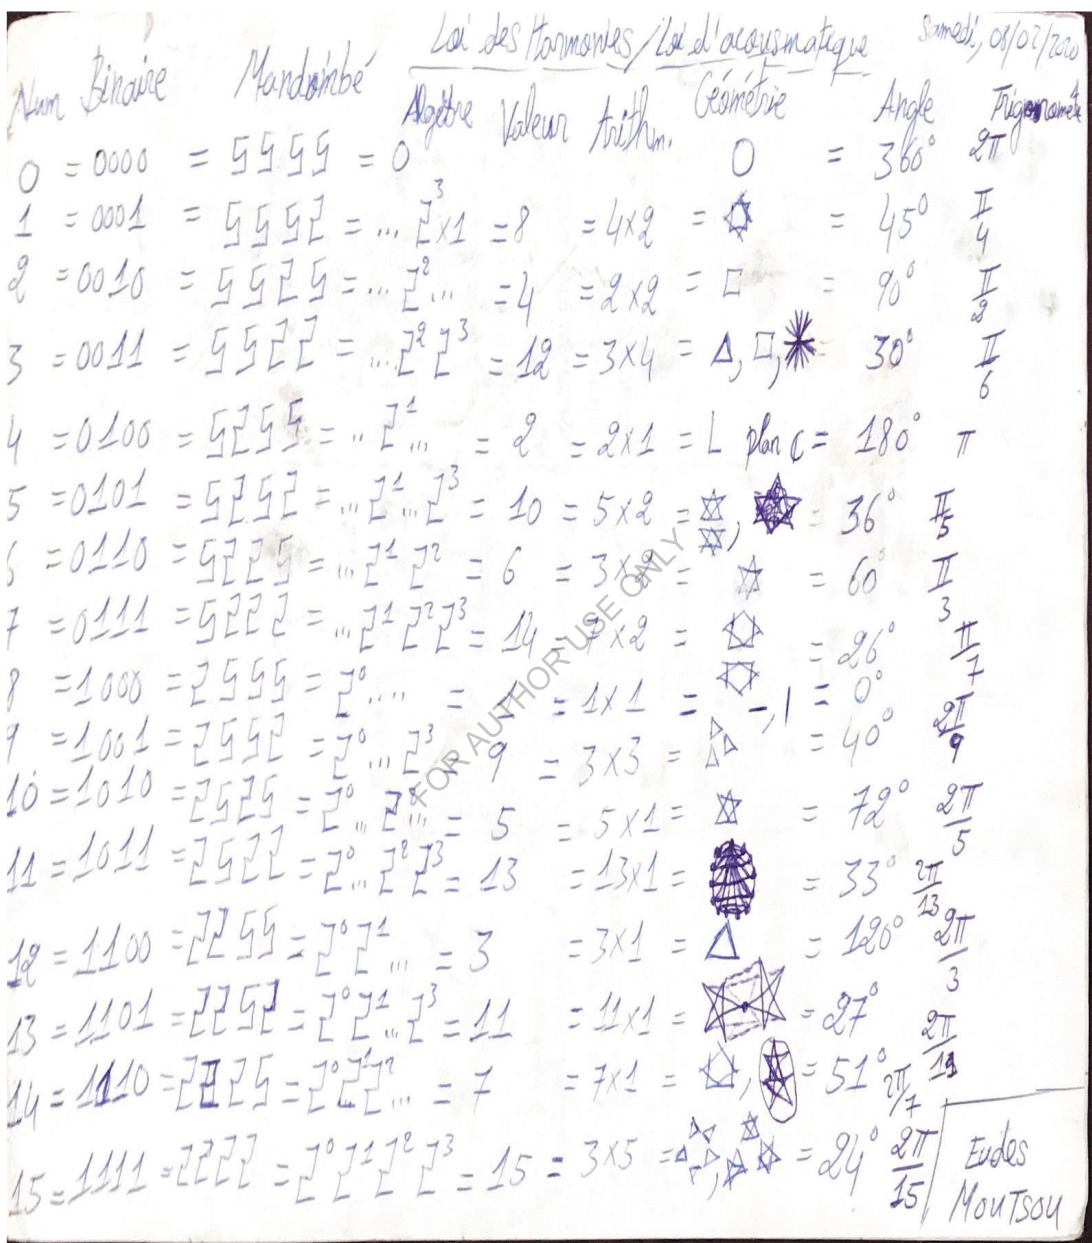 Loi des Harmonies/Loi d'acousmatique Samedi, 08/02/2020
Num Binaire Mandombé Algèbre Valeur Arithm. Géométrie Angle Trigonométr
0 = 0000 = 5555 = 0 = 360° 2π
1 = 0001 = 5552 = ...2³x1 = 8 = 4x2 = = 45° π/4
2 = 0010 = 5525 = ...2²... = 4 = 2x2 = = 90° π/2
3 = 0011 = 5522 = ...2²2³ = 12 = 3x4 = , , = 30° π/6
4 = 0100 = 5255 = ..2¹... = 2 = 2x1 = L plan ₵ = 180° π
5 = 0101 = 5252 = ...2¹...2³ = 10 = 5x2 = , = 36° π/5
6 = 0110 = 5225 = ...2¹2² = 6 = 3x2 = = 60° π/3
7 = 0111 = 5222 = ...2¹2²2³ = 14 = 7x2 = = 26° π/7
8 = 1000 = 2555 = 2⁰.... = 1 = 1x1 = -, | = 0°
9 = 1001 = 2552 = 2⁰...2³ = 9 = 3x3 = = 40° 2π/9
10 = 1010 = 2525 = 2⁰...2²... = 5 = 5x1 = = 72° 2π/5
11 = 1011 = 2522 = 2⁰...2²2³ = 13 = 13x1 = = 33° 2π/13
12 = 1100 = 2255 = 2⁰2¹... = 3 = 3x1 = = 120° 2π/3
13 = 1101 = 2252 = 2⁰2¹...2³ = 11 = 11x1 = = 27° 2π/11
14 = 1110 = 2225 = 2⁰2¹2²... = 7 = 7x1 = , = 51° 2π/7
15 = 1111 = 2222 = 2⁰2¹2²2³ = 15 = 3x5 = , = 24° 2π/15
Eudes
MOUTSOU
FOR AUTHOR USE ONLY